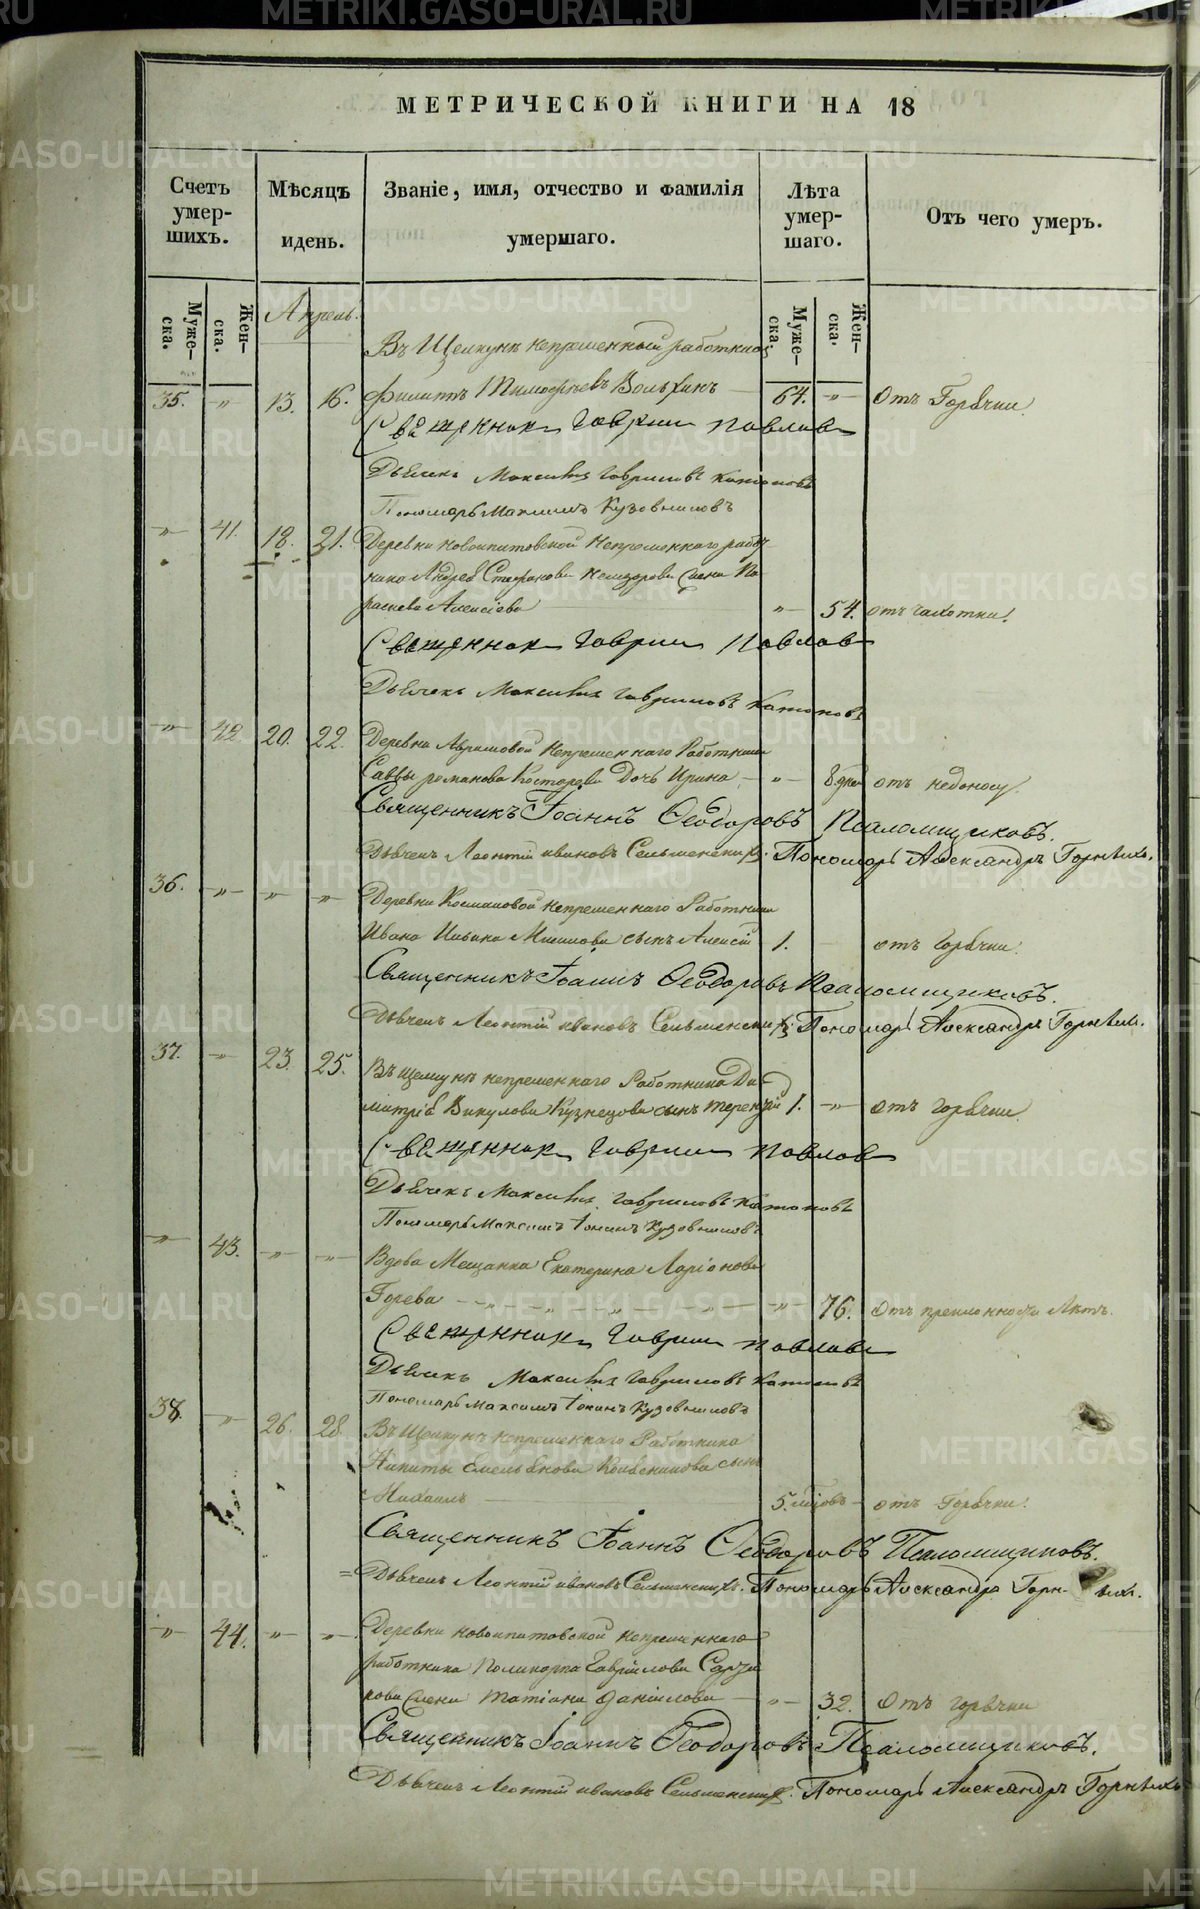 МЕТРИЧЕСКОЙ КНИГИ НА 18
Счетъ умер-шихъ.
Мѣсяцъ идень.
Званіе, имя, отчество и фамилія умершаго.
Лѣта умер-шаго.
Отъ чего умеръ.
Муже-ска.
Жен-ска.
Муже-ска.
Жен-ска.
Апрель.
Въ Щелкунѣ непременный работникъ
35. „ 13. 16. Филиппъ Тимофѣевъ 64. „ Отъ Горѣчки.
Священникъ Гавриилъ Павловъ
Дьячекъ Максимъ Гавриловъ
Пономарь Максимъ Кузовниковъ
„ 41. 18. 21. Деревни Новоипатовской Непременнаго работ-
ника Андрея Стефанова жена Па-
раскева Алексіева „ 54. отъ чахотки.
Священникъ Гавриилъ Павловъ
Дьячекъ Максимъ Гавриловъ
„ 42. 20. 22. Деревни Абрамовой Непременнаго Работника
Саввы Романова Костарева Дочь Ирина „ 8 дней отъ недоносу.
Священникъ Іоаннъ Ѳеодоровъ Псаломщиковъ.
Дьячекъ Леонтій Ивановъ Сельменскихъ. Пономарь Александръ Горныхъ.
36. „ „ „ Деревни Космаковой Непременнаго Работника
Ивана сынъ Алексій 1. отъ Горѣчки.
Священникъ Іоаннъ Ѳеодоровъ Псаломщиковъ.
Дьячекъ Леонтій Ивановъ Сельменскихъ. Пономарь Александръ Горныхъ.
37. „ 23. 25. Въ Щелкунѣ непременнаго Работника Ди-
митрія Викулова Кузнецова сынъ Терентій 1. „ Отъ Горѣчки.
Священникъ Гавриилъ Павловъ
Дьячекъ Максимъ Гавриловъ
Пономарь Максимъ Кузовниковъ
„ 43. „ „ Вдова Мещанка Екатерина Ларіонова
Горева „ „ „ „ „ 76. Отъ преклонности Лѣтъ.
Священникъ Гавриилъ Павловъ
Дьячекъ Максимъ Гавриловъ
Пономарь Максимъ Кузовниковъ
38. „ 26. 28. Въ Щелкунѣ непременнаго Работника
Никиты Емельянова сынъ
Михаилъ 5. мѣсяцовъ отъ Горѣчки.
Священникъ Іоаннъ Ѳеодоровъ Псаломщиковъ.
Дьячекъ Леонтій Ивановъ Сельменскихъ. Пономарь Александръ Горныхъ.
„ 44. „ „ Деревни Новоипатовской непременнаго
работника Поликарпа Гавріилова
жена Татіана Даніилова „ 32. Отъ горѣчки
Священникъ Іоаннъ Ѳеодоровъ Псаломщиковъ.
Дьячекъ Леонтій Ивановъ Сельменскихъ. Пономарь Александръ Горныхъ
METRIKI.GASO-URAL.RU